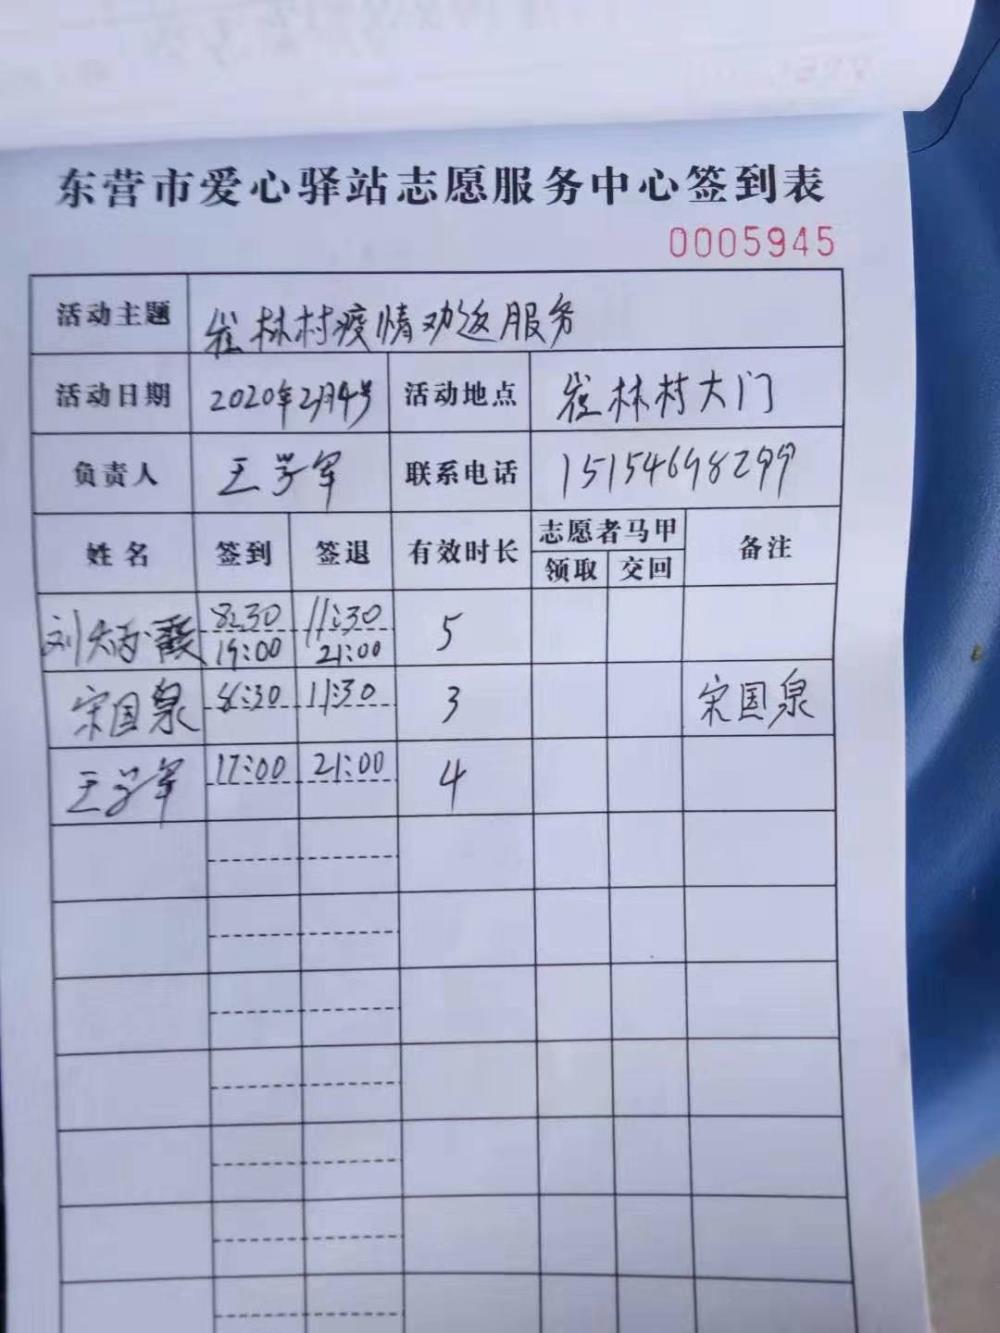 东营市爱心驿站志愿服务中心签到表
0005945
活动主题 崔林村疫情劝返服务
活动日期 2020年2月4号 活动地点 崔林村大门
负责人 王学军 联系电话 15154698299
姓名 签到 签退 有效时长 志愿者马甲 备注
领取 交回
刘炳霞 8:30 11:30 5
19:00 21:00
宋国泉 8:30 11:30 3 宋国泉
王学军 17:00 21:00 4